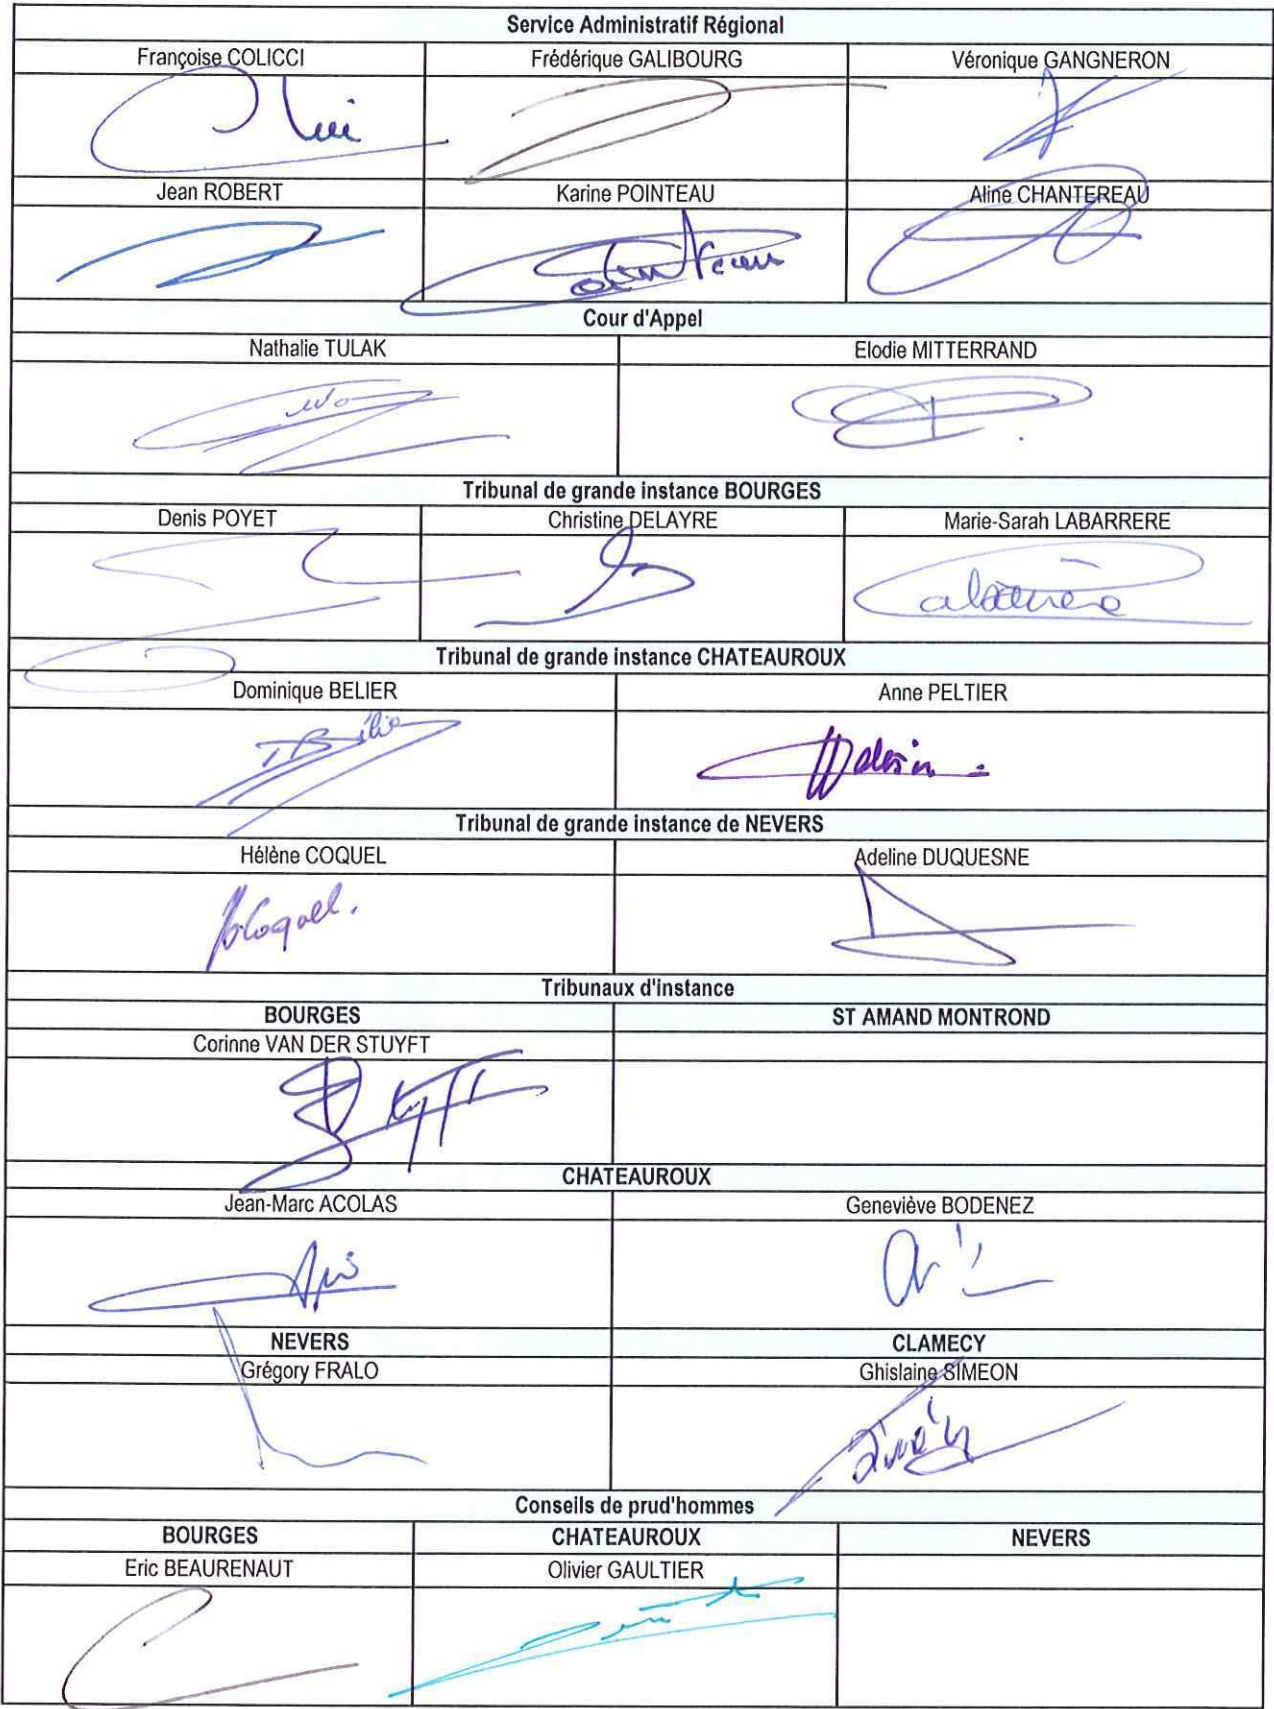 Service Administratif Régional
Françoise COLICCI Frédérique GALIBOURG Véronique GANGNERON
Jean ROBERT Karine POINTEAU Aline CHANTEREAU
Cour d'Appel
Nathalie TULAK Elodie MITTERRAND
Tribunal de grande instance BOURGES
Denis POYET Christine DELAYRE Marie-Sarah LABARRERE
Tribunal de grande instance CHATEAUROUX
Dominique BELIER Anne PELTIER
Tribunal de grande instance de NEVERS
Hélène COQUEL Adeline DUQUESNE
Tribunaux d'instance
BOURGES ST AMAND MONTROND
Corinne VAN DER STUYFT
CHATEAUROUX
Jean-Marc ACOLAS Geneviève BODENEZ
NEVERS CLAMECY
Grégory FRALO Ghislaine SIMEON
Conseils de prud'hommes
BOURGES CHATEAUROUX NEVERS
Eric BEAURENAUT Olivier GAULTIER